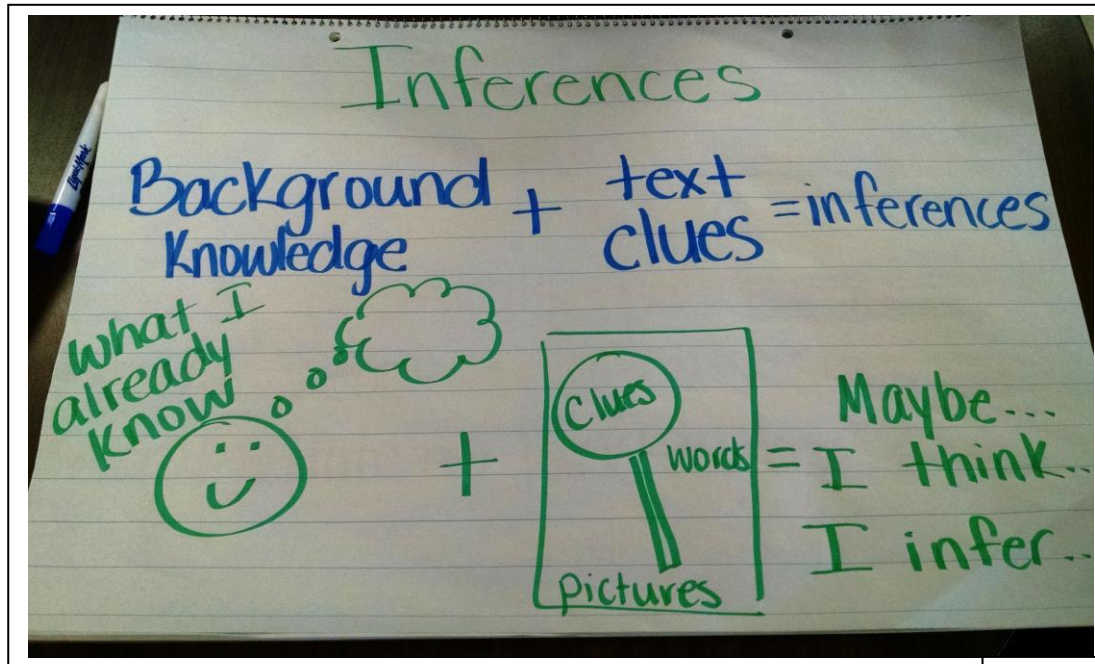 Inferences
Background + text
Knowledge clues = inferences
What I
already
know
clues
words
pictures
+ =
Maybe...
I think..
I infer..